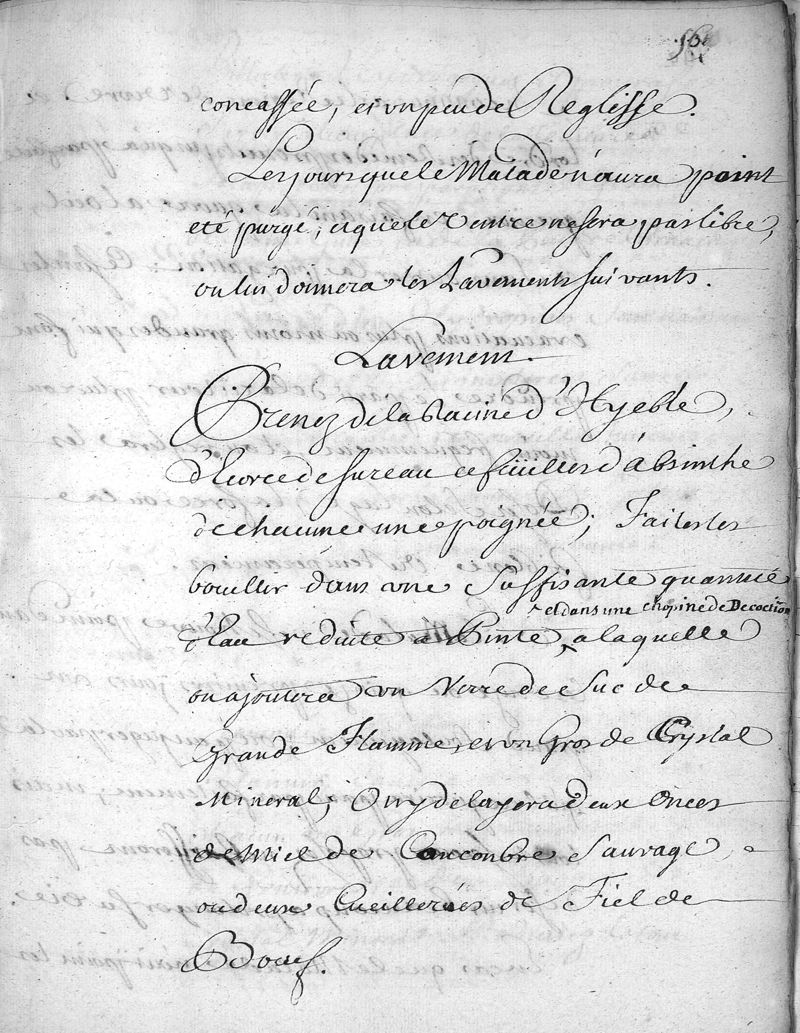 concassée, et un peu de Reglisse.
Les jours que le Malade n'aura point
eté purgé, et que le Ventre ne sera pas libre,
on lui donnera les Lavements suivants.
Lavement.
Prenez de la Racine d'Hyeble,
d'Ecorce de sureau et feüilles d'Absinthe
de chacune une poignée; Faites les
bouillir dans une suffisante quantité
et dans une chopine de Decoction
d'Eau reduite a Pinte, a laquelle
on ajoutera un Verre de Suc de
Grande Flamme, et un Gros de Crystal
Mineral; On y delayera deux Onces
de Miel de Concombre Sauvage,
ou deux Cueillerées de Fiel de
Boeuf.